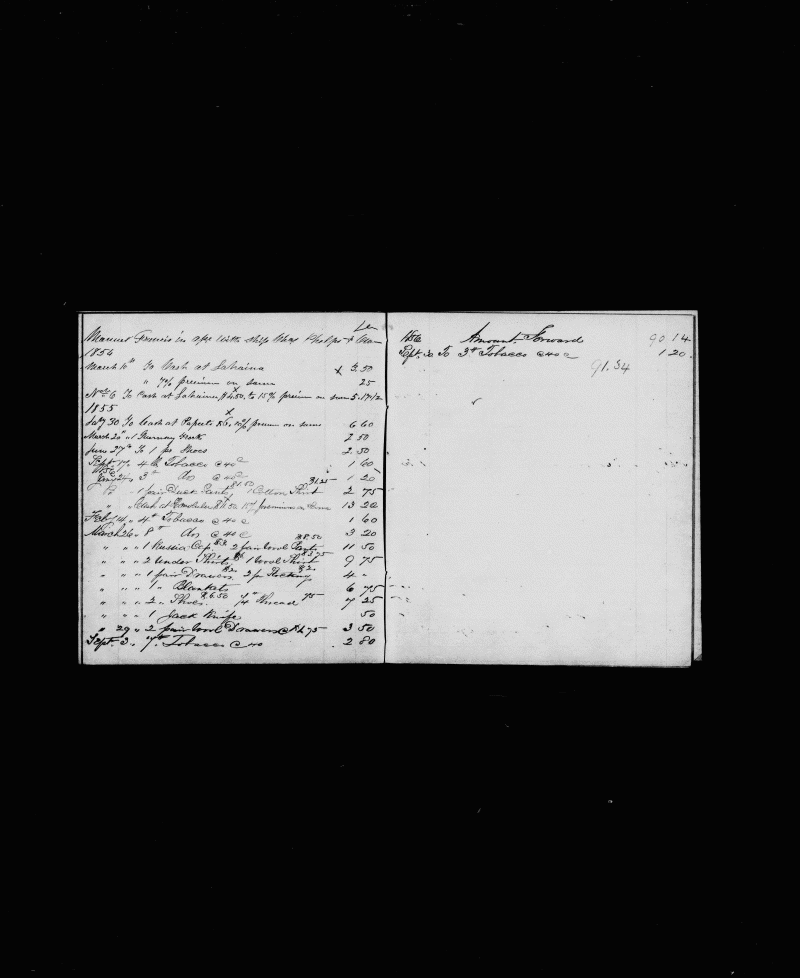 Manuel Francis in
1854
March 10" To Cash at Lahaina x 3.50
" 7% premium on same 25
Novr 6 To Cash at Lahaina $4.50, to 15% premium on same 5.17 1/2
1855 x
Jany 30 To Cash at 10% premium on same 6 60
March 20" at 2 50
June 27th To 1 pr Shoes 2 50
Sept. 17, 4 lb Tobacco @ 40c 1 60
1856
24, 3 lb do @ 40c 1 20
1 pair Duck Pants, $1.50 1 Cotton Shirt $1.25 2 75
" Cash at 10% premium on same 13 20
Feb. 14 " 4 lb Tobacco @ 40c 1 60
March 26 " 8 lb do @ 40c 3 20
" " " 1 Russia Cap $3 2 pair Wool Pants $8.50 11 50
" " " 2 under Shirts, $6 1 Wool Shirt $3.75 9 75
" " " 1 pair Drawers, $2 2 pr Stockings $2 4 "
" " " 1 " Blankets 6 75
" " " 2 " Shoes, $6.50 1/4 lb thread 75 7 25
" " " 1 Jack Knife 50
" 29 " 2 pair Wool Drawers @ $1.75 3 50
Sept. 3. 7 lb Tobacco @ 40 2 80
1856 Amount Forward 90 14
Sept. To 3 lb Tobacco @ 40c 1 20
91.34